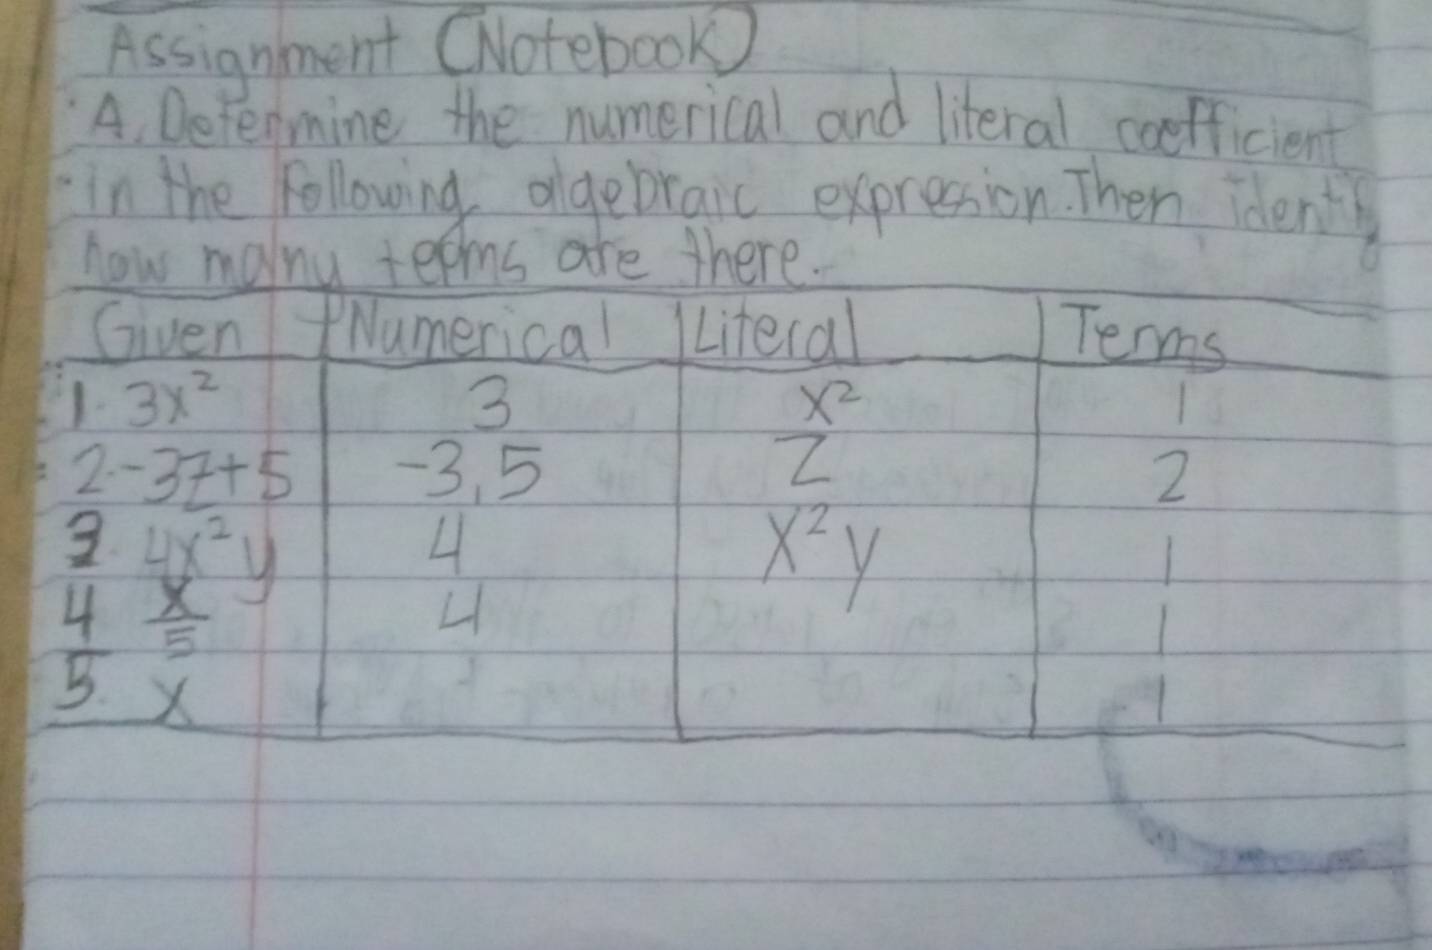 Assignment (Notebook)
A. Determine the numerical and literal coefficient
in the following algebraic expression. Then identify
how many terms are there.
Given Numerical Literal Terms
1. 3x² 3 x² 1
2. -3z+5 -3,5 z 2
3. 4x²y 4 x²y 1
4 x/5 4 1
5. x 1